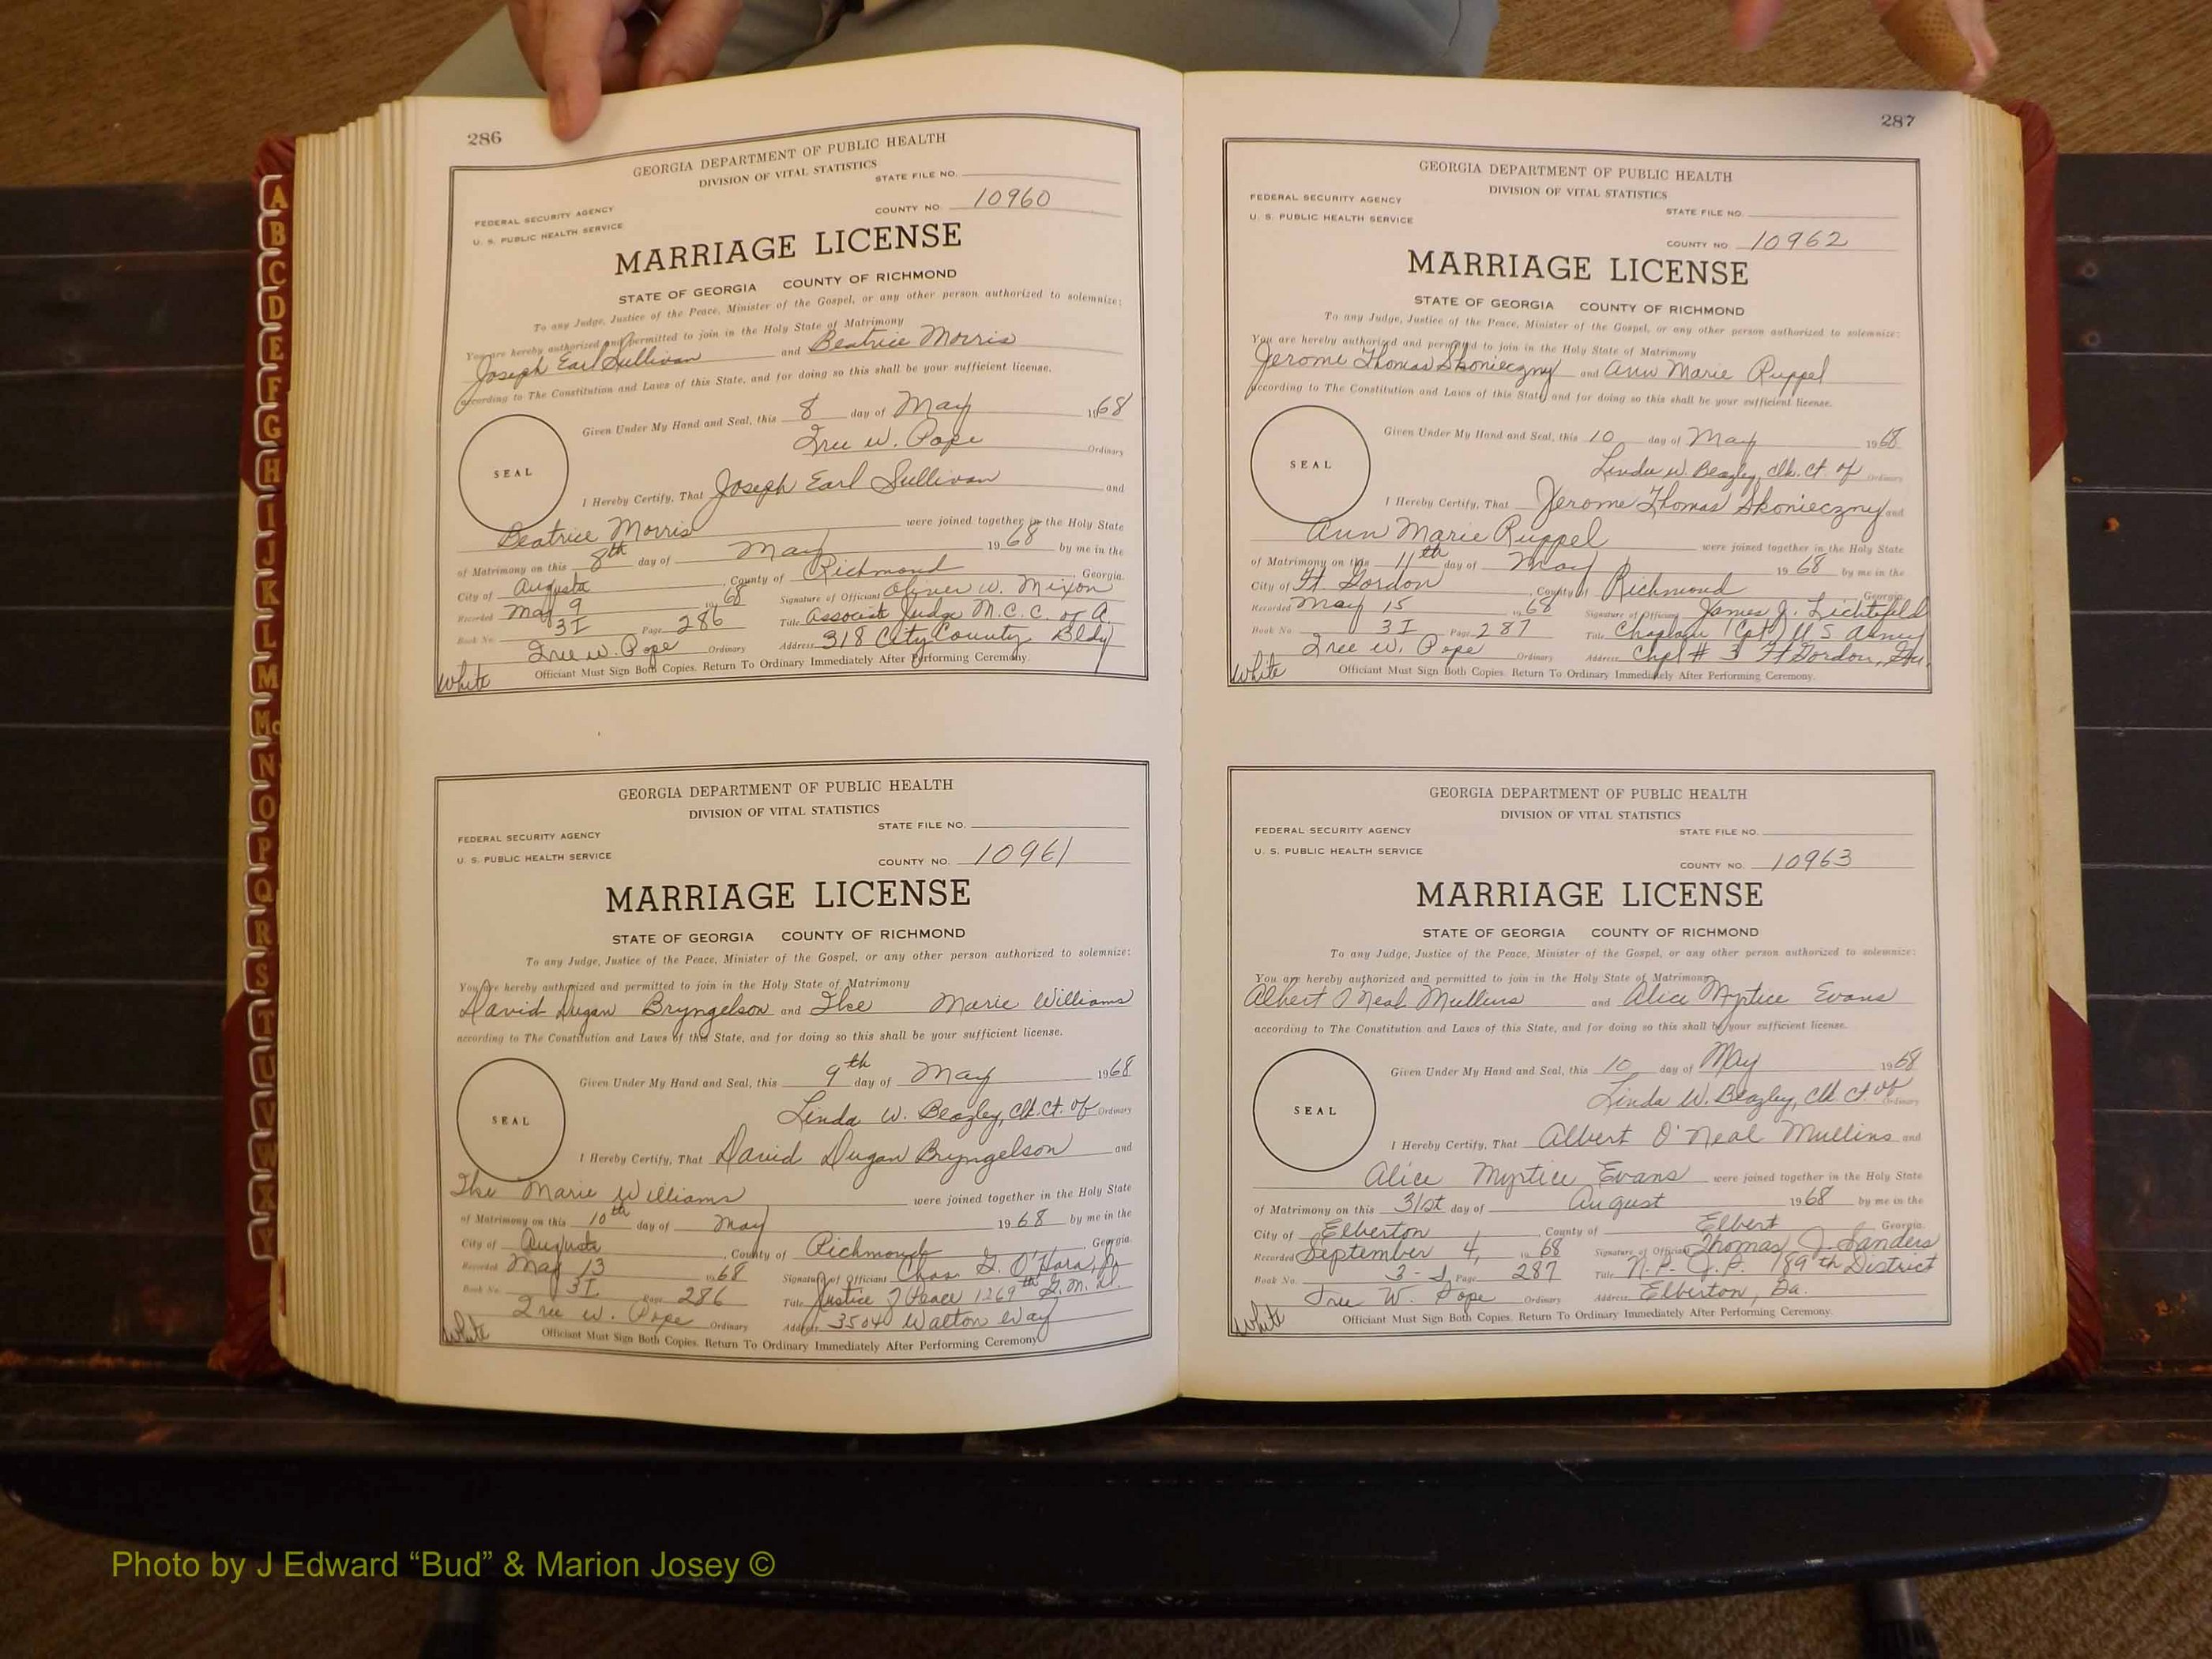 286
GEORGIA DEPARTMENT OF PUBLIC HEALTH
DIVISION OF VITAL STATISTICS
STATE FILE NO.
FEDERAL SECURITY AGENCY
COUNTY NO. 10960
U. S. PUBLIC HEALTH SERVICE
MARRIAGE LICENSE
STATE OF GEORGIA COUNTY OF RICHMOND
To any Judge, Justice of the Peace, Minister of the Gospel, or any other person authorized to solemnize:
You are hereby authorized and permitted to join in the Holy State of Matrimony
Joseph Earl Sullivan and Beatrice Morris
according to The Constitution and Laws of this State, and for doing so this shall be your sufficient license.
Given Under My Hand and Seal, this 8 day of May 1968
Tree W. Pope Ordinary
SEAL
I Hereby Certify, That Joseph Earl Sullivan and
Beatrice Morris were joined together in the Holy State
of Matrimony on this 8th day of May 1968 by me in the
City of Augusta, County of Richmond, Georgia.
Recorded May 9 1968 Signature of Officiant Oliver W. Mixon
Book No. 3I Page 286 Title Associat Judge M.C.C. of A.
Tree W. Pope Ordinary Address 318 City County Bldg
Officiant Must Sign Both Copies. Return To Ordinary Immediately After Performing Ceremony.
White
GEORGIA DEPARTMENT OF PUBLIC HEALTH
DIVISION OF VITAL STATISTICS
STATE FILE NO.
FEDERAL SECURITY AGENCY
U. S. PUBLIC HEALTH SERVICE
COUNTY NO. 10961
MARRIAGE LICENSE
STATE OF GEORGIA COUNTY OF RICHMOND
To any Judge, Justice of the Peace, Minister of the Gospel, or any other person authorized to solemnize:
You are hereby authorized and permitted to join in the Holy State of Matrimony
David Dugan Bryngelson and Ilse Marie Williams
according to The Constitution and Laws of this State, and for doing so this shall be your sufficient license.
Given Under My Hand and Seal, this 9th day of May 1968
Linda W. Beazley, Clk. Ct. of Ordinary
SEAL
I Hereby Certify, That David Dugan Bryngelson and
Ilse Marie Williams were joined together in the Holy State
of Matrimony on this 10th day of May 1968 by me in the
City of Augusta, County of Richmond Georgia.
Recorded May 13 1968 Signature of Officiant Chas. G. O'Hara, Jr.
Book No. 3I Page 286 Title Justice of Peace 1269th G.M.D.
Tree W. Pope Ordinary Address 3504 Walton Way
Officiant Must Sign Both Copies. Return To Ordinary Immediately After Performing Ceremony.
White
287
GEORGIA DEPARTMENT OF PUBLIC HEALTH
DIVISION OF VITAL STATISTICS
FEDERAL SECURITY AGENCY
STATE FILE NO.
U. S. PUBLIC HEALTH SERVICE
COUNTY NO. 10962
MARRIAGE LICENSE
STATE OF GEORGIA COUNTY OF RICHMOND
To any Judge, Justice of the Peace, Minister of the Gospel, or any other person authorized to solemnize:
You are hereby authorized and permitted to join in the Holy State of Matrimony
Jerome Thomas Skonieczny and Ann Marie Ruppel
according to The Constitution and Laws of this State, and for doing so this shall be your sufficient license.
Given Under My Hand and Seal, this 10 day of May 1968
Linda W. Beazley, Clk. Ct. of Ordinary
SEAL
I Hereby Certify, That Jerome Thomas Skonieczny and
Ann Marie Ruppel were joined together in the Holy State
of Matrimony on this 11th day of May 1968 by me in the
City of Ft. Gordon, County of Richmond Georgia.
Recorded May 15 1968 Signature of Officiant James J.
Book No. 3I Page 287 Title Chaplain (Cpt) U S Army
Tree W. Pope Ordinary Address Chpl # 3 Ft Gordon, Ga.
Officiant Must Sign Both Copies. Return To Ordinary Immediately After Performing Ceremony.
White
GEORGIA DEPARTMENT OF PUBLIC HEALTH
DIVISION OF VITAL STATISTICS
FEDERAL SECURITY AGENCY
STATE FILE NO.
U. S. PUBLIC HEALTH SERVICE
COUNTY NO. 10963
MARRIAGE LICENSE
STATE OF GEORGIA COUNTY OF RICHMOND
To any Judge, Justice of the Peace, Minister of the Gospel, or any other person authorized to solemnize:
You are hereby authorized and permitted to join in the Holy State of Matrimony
Albert O'Neal Mullins and Alice Myrtice Evans
according to The Constitution and Laws of this State, and for doing so this shall be your sufficient license.
Given Under My Hand and Seal, this 10 day of May 1968
Linda W. Beazley, Clk. Ct. of Ordinary
SEAL
I Hereby Certify, That Albert O'Neal Mullins and
Alice Myrtice Evans were joined together in the Holy State
of Matrimony on this 31st day of August 1968 by me in the
City of Elberton, County of Elbert Georgia.
Recorded September 4, 1968 Signature of Officiant Thomas J. Sanders
Book No. 3-I Page 287 Title N.P. J.P. 189th District
Tree W. Pope Ordinary Address Elberton, Ga.
Officiant Must Sign Both Copies. Return To Ordinary Immediately After Performing Ceremony.
White
A
B
C
D
E
F
G
H
I
J
K
L
M
Mc
N
O
P
Q
R
S
T
U
V
W
X
Y
Photo by J Edward “Bud” & Marion Josey ©